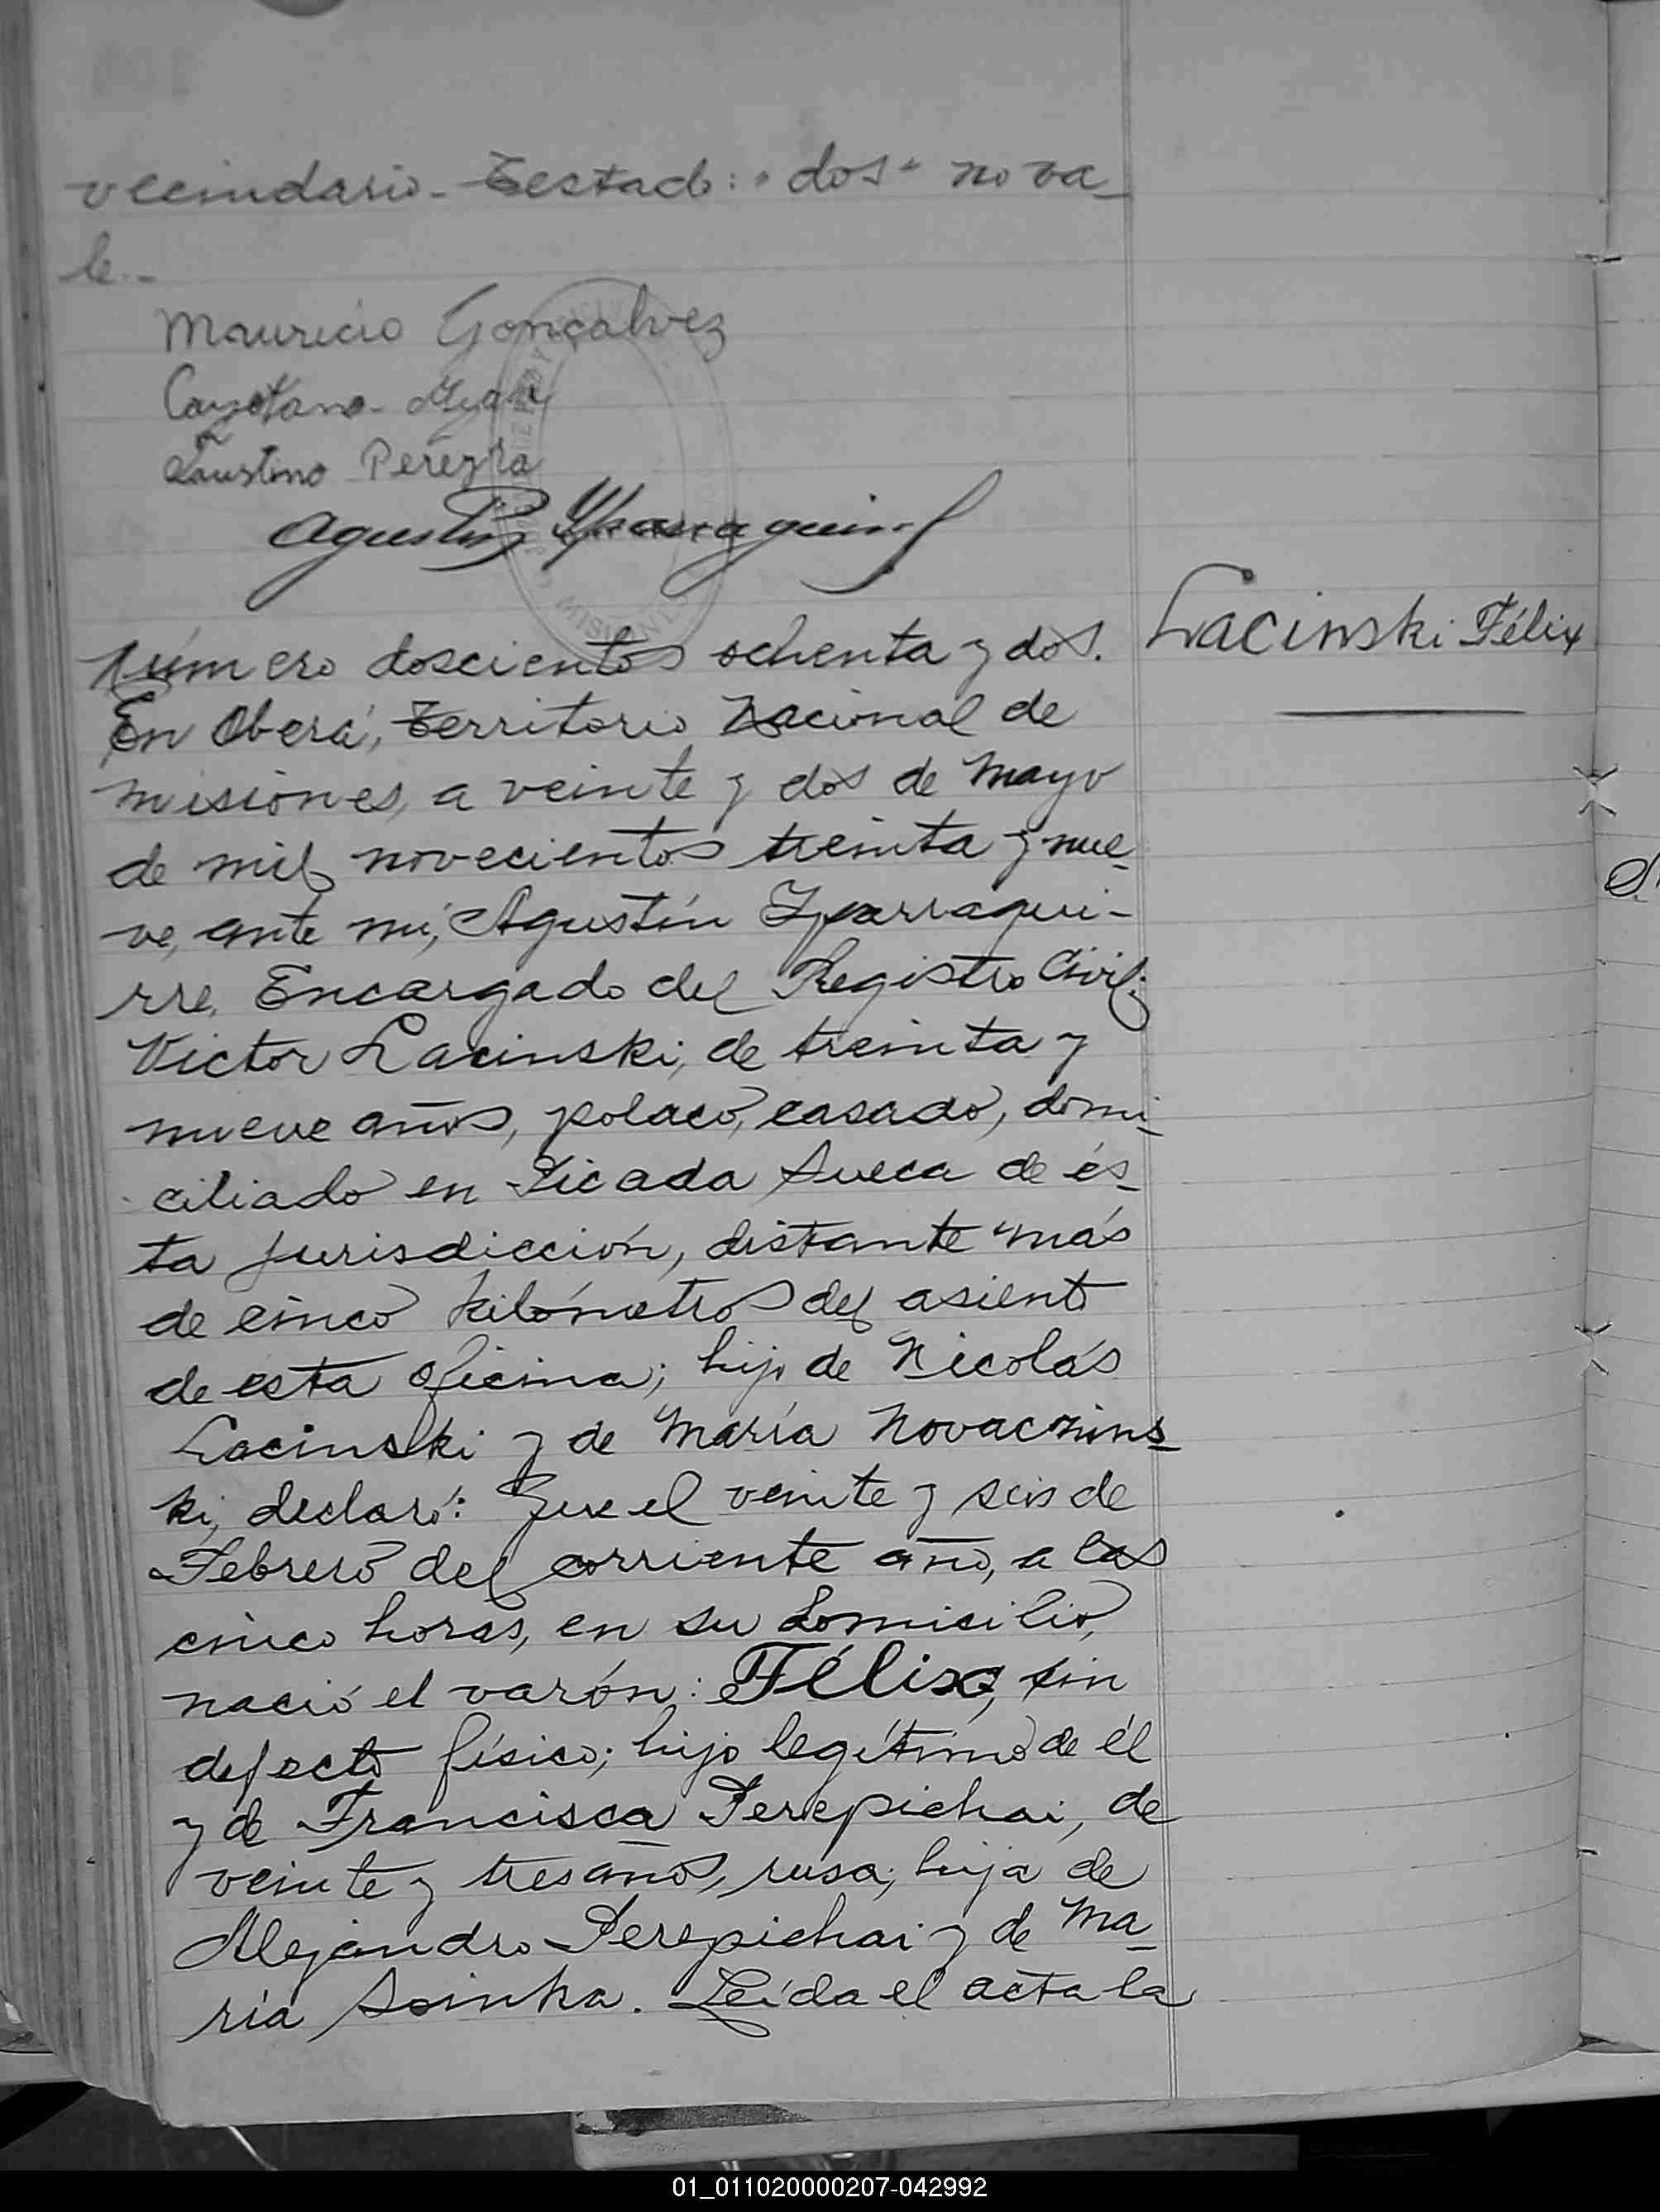 vecindario - Testado: "dos" no va-
le.-
Mauricio Gonçalvez
Cayetano
Faustino Pereyra
Agustín Yparraguirre
MISIONES
Lacinski Félix
Número doscientos ochenta y dos.
En Oberá, Territorio Nacional de
Misiones, a veinte y dos de Mayo
de mil novecientos treinta y nue-
ve, ante mí, Agustín Yparragui-
rre, Encargado del Registro Civil;
Victor Lacinski, de treinta y
nueve años, polaco, casado, domi-
ciliado en Picada Sueca de és-
ta jurisdicción, distante más
de cinco kilómetros del asiento
de esta oficina; hijo de Nicolás
Lacinski y de María Novaczins-
ki, declaró: Que el veinte y seis de
Febrero del corriente año, a las
cinco horas, en su domicilio,
nació el varón: Félix, sin
defecto físico; hijo legítimo de él
y de Francisca Perepichai, de
veinte y tres años, rusa; hija de
Alejandro Perepichai y de Ma-
ría Soinka. Leída el acta la
01_011020000207-042992